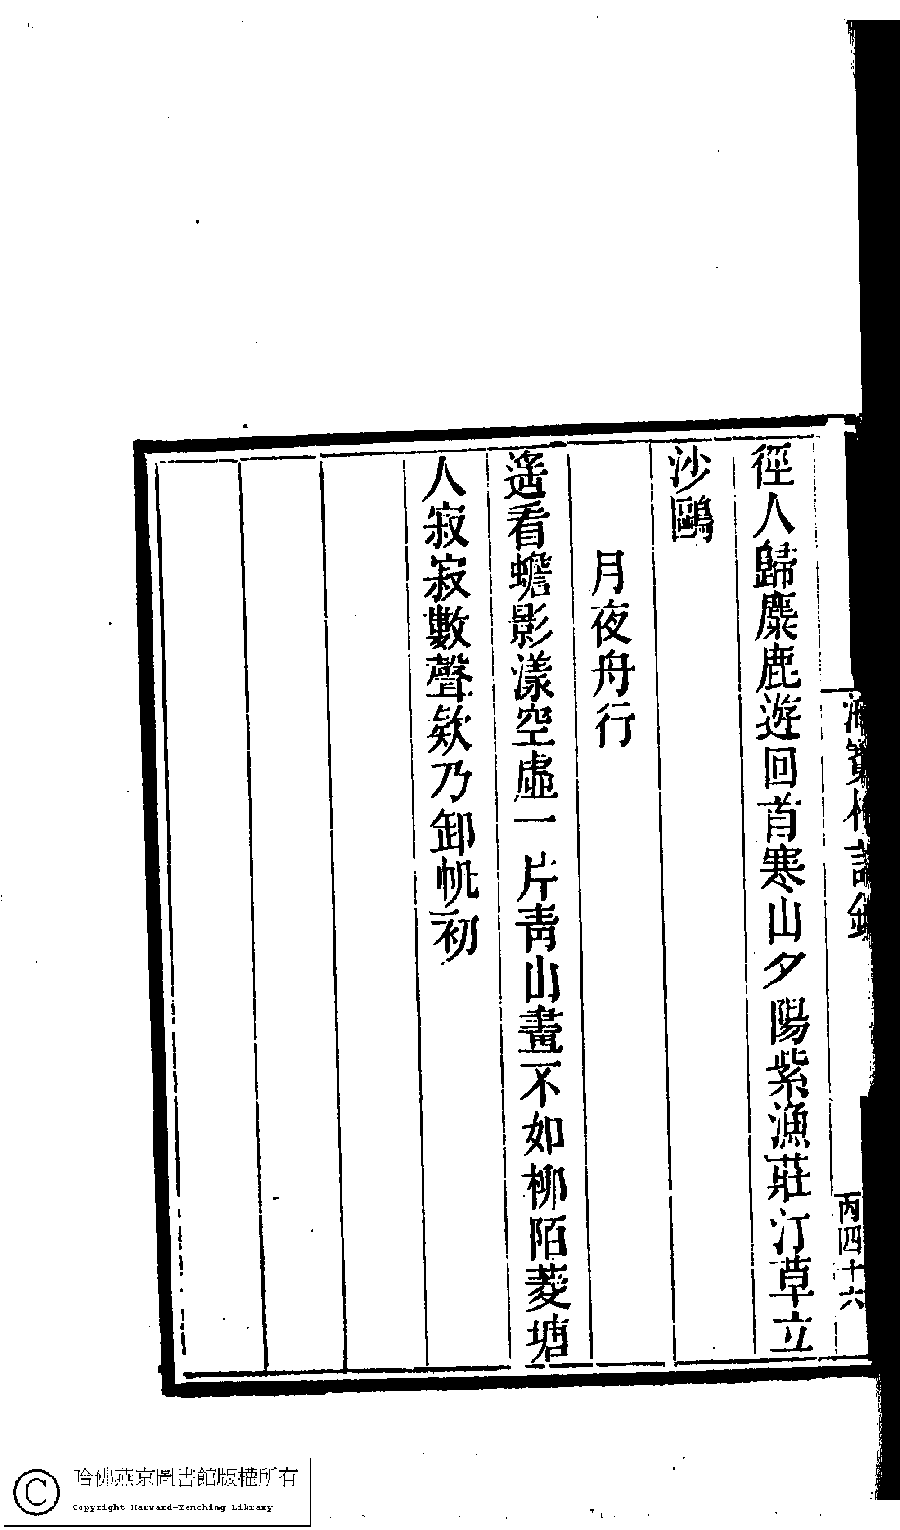 徑人歸麋鹿遊回首寒山夕陽紫漁莊汀草立
沙鷗
月夜舟行
遥看蟾影漾空虛一片靑山畫不如柳陌菱塘
人寂寂數聲欸乃卸帆初
丙四十六
哈佛燕京圖書館版權所有
Copyright Harvard-Yenching Library